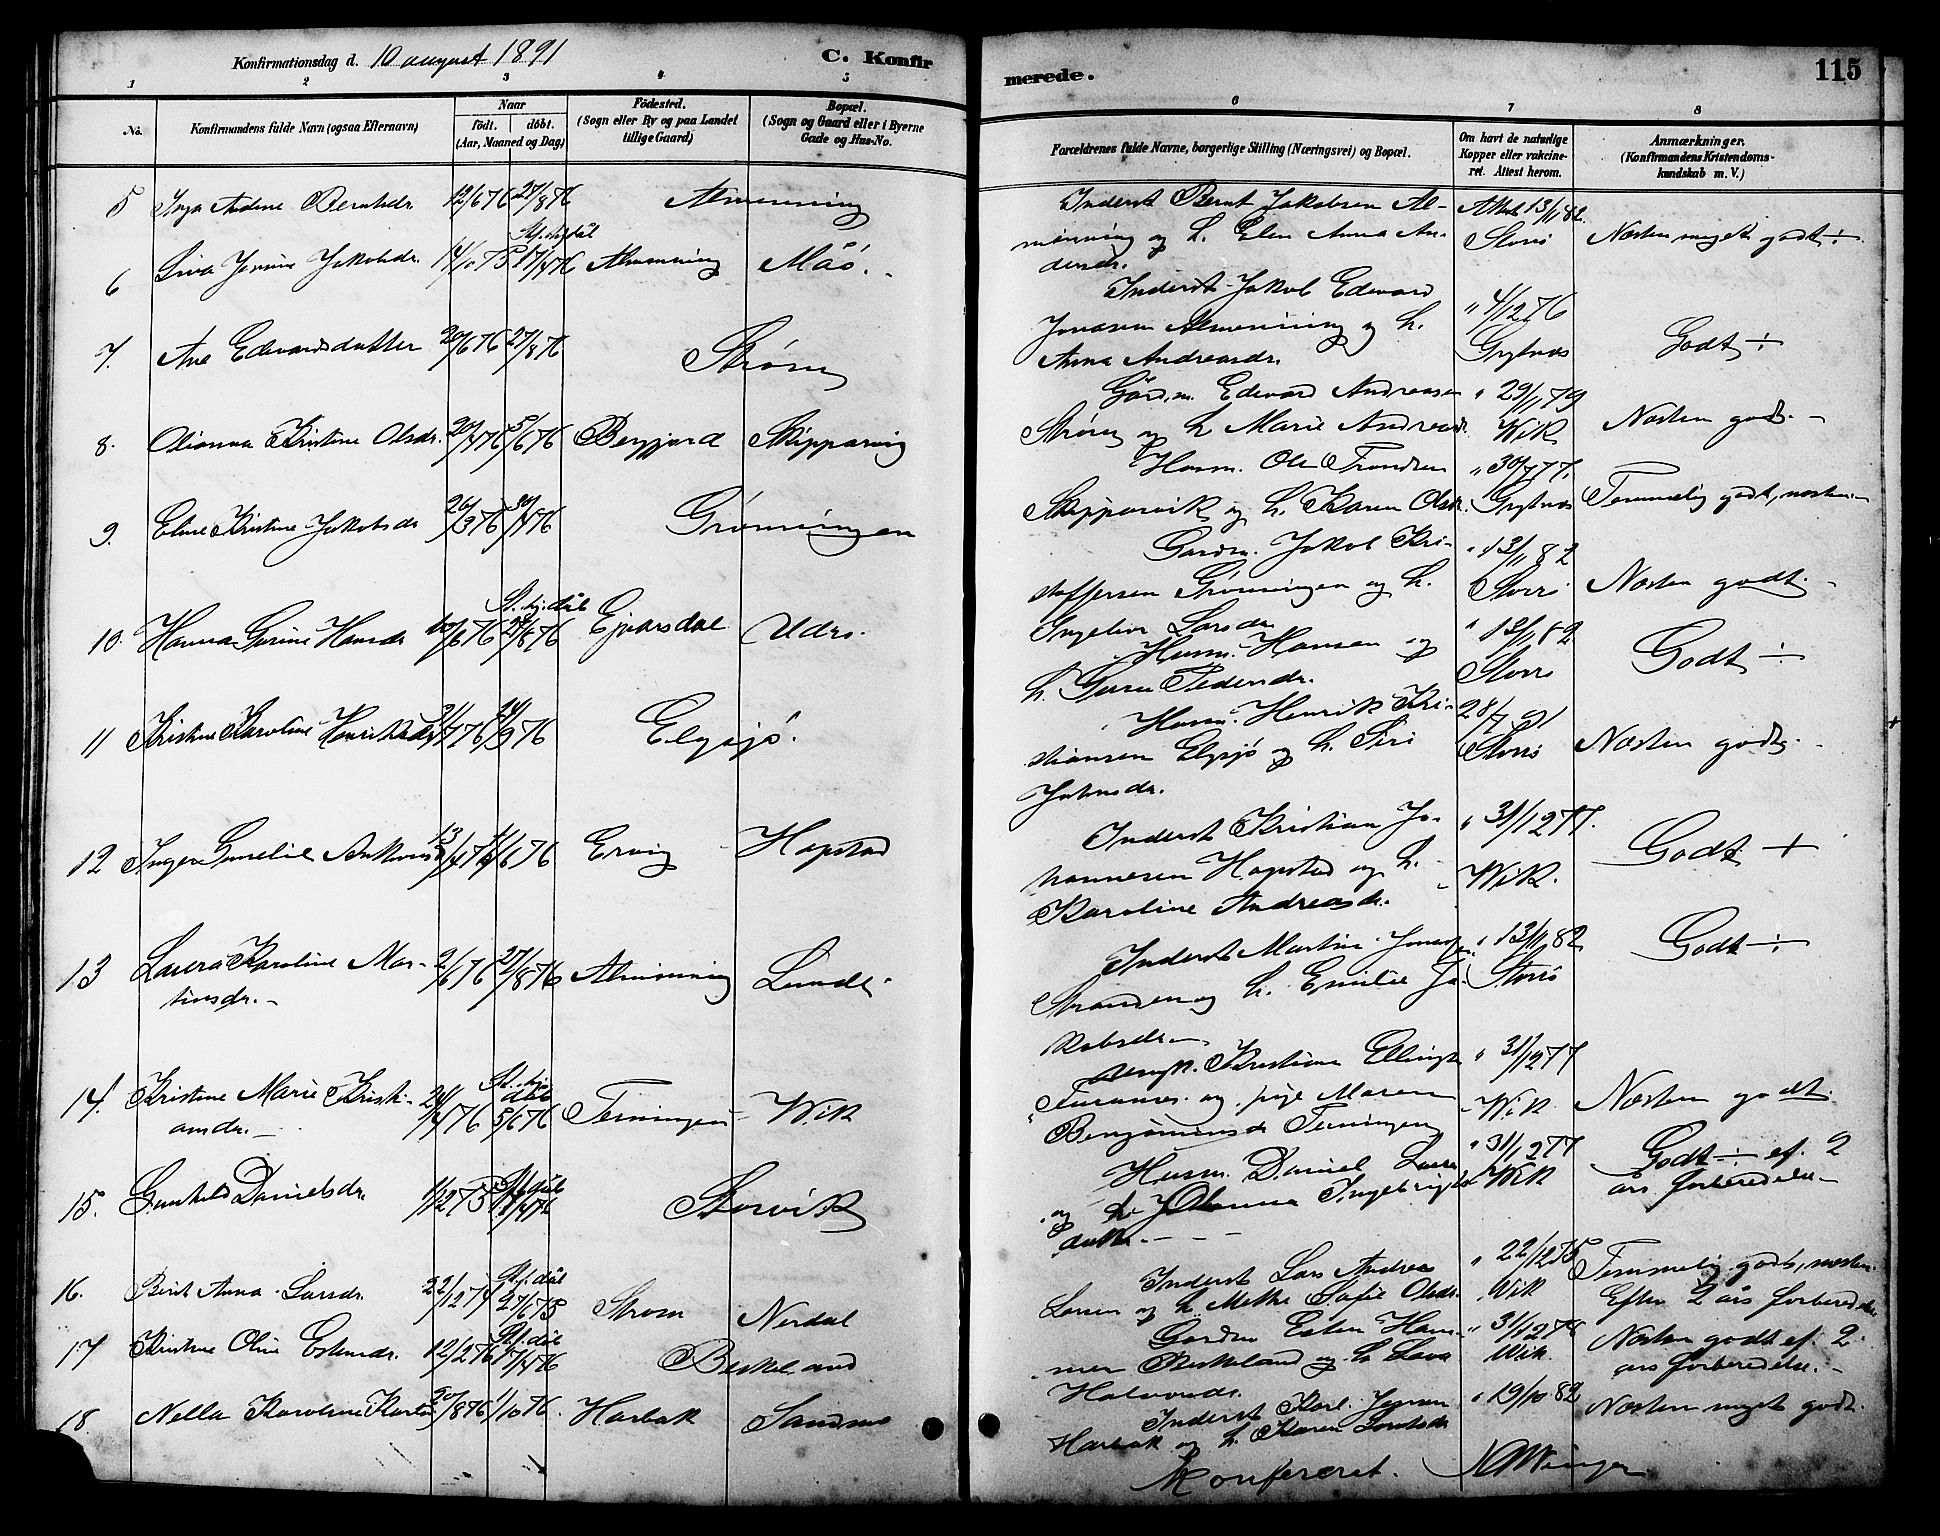 Konfirmationsdag d. 10 august 1891
C. Konfirmerede.
115
1 2 3 4 5 6 7 8
No.
Konfirmandens fulde Navn (ogsaa Efternavn)
Naar
födt. döbt.
(Aar, Maaned og Dag)
Födested.
(Sogn eller By og paa Landet
tillige Gaard)
Bopæl.
(Sogn og Gaard eller i Byerne
Gade og Hus-No.
Forældrenes fulde Navne, borgerlige Stilling (Næringsvei) og Bopæl.
Om havt de naturlige
Kopper eller vakcine-
ret. Attest herom.
Anmærkninger.
(Konfirmandens Kristendoms-
kundskab m. V.)
5 Inga Andine Berntsdr. 12/6 76 27/8 76 Almenning
Inderst Bernt Jakobsen Al-
menning og h. Elen Anna An-
dersdr.
13/1 82 Storö
Næsten meget godt ÷
6 Jakobsdr. 14/10 75 17/4 76 Almenning Måö.
Inderst Jakob Edvard
Jonasen Almenning og h.
Anna Andreasdr.
" 4/12 76 Grytnes
Godt ÷
7. Ane Edvardsdatter 20/6 76 27/8 76 Strøm
Gårdm. Edvard Andreasen
Strøm og h. Marie Andreasdr.
" 29/1 79 Wik
Næsten godt. -
8. Olianna Kristine Olsdr. 20/4 76 5/6 76 Bergfjord Skipparvig
Husm. Ole Trondsen
Skipparvik og h. Karen Olsdr.
" 30/7 77. Grytnes
Temmelig godt, næsten
9. Eline Kristine Jakobsdr 26/3 76 30/4 76 Grønningen
Gardm. Jakob Kri-
stoffersen Grønningen og h.
Ingeline Larsdr
" 13/1 82 Storö
Næsten godt. -
10. Hanna Gurine Hansdr 27/8 76 Udrö.
Husm. Hansen og
h. Guren Pedersdr.
" 13/1 82 Storö
Godt ÷
11 Kristine Karoline Henriksdr 76 Elgsjö.
Husm. Henrik Kri-
stiansen Elgsjö og h. Siri
Johnsdr.
28/7 91 Storö
Næsten godt. -
12 Inger 13/4 76 /6 76 Ervig Hopstad
Inderst Kristian Jo-
hannesen Hopstad og h.
Karoline Andreasdr.
" 31/12 77. Wik.
Godt +
13 Laura Karoline Mar-
tinsdr. - 2/6 76 27/8 76 Almenning Lunde
Inderst Martin
Stranden og h. Emilie Ja-
kobsdr -
" 13/1 82 Storö
Godt ÷
14. Kristine Marie Kristi-
ansdr. - 24/4 76 5/6 76 Terningen Wik
ungk. Kristian Ellings
og pige Maren
Benjaminsdr Terningen
" 31/12 77 Wik
Næsten godt.
15. Gunhild Danielsdr. 1/12 75 76 Storvik
Husm. Daniel
og h. Johanna Ingebrigts-
datter. - - -
" 31/12 77 Wik
Godt ÷ ef. 2
års forberedelse -
16. Berit Anna Larsdr. 22/12 74 27/6 75 Strøm Nerdal
Inderst Lars Andrea
Larsen og h. Mette Sofie Olsdr
" 22/12 75 Wik
Temmelig godt, næsten.
Efter 2 års forberedelse
17 Kristine Oline Estensdr. 12/2 76 17/4 76 Beskeland
Gardm Esten Ham-
mer Beskeland og h Lava
Halvorsdr.
" 31/12 78 Wik.
Næsten godt ef. 2
ars forberedelse. -
18. Nella Karoline Karls 20/8 76 1/10 76 Harbak Sandnes
Inderst Karl Jonsen
Harbak og h. Karen
" 19/10 82
Næsten meget godt.
Konfereret.